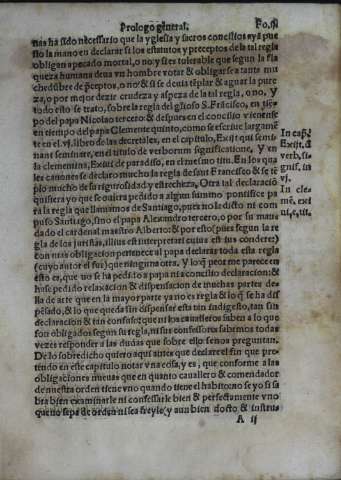 Prologo general. Fo.iij
nas ha sido necessario que la yglesia y sacros concilios ayã pue
sto la mano en declarar si los estatutos y preceptos de la tal regla
obligan a pecado mortal, o no: y si es tolerable que segun la fla
queza humana deua vn hombre votar & obligarse a tanta mu
chedũbre de pceptos, o no: & si se deuia tẽplar & aguar la pure
za, o por mejor dezir crudeza y aspeza de la tal regla, o no, Y
todo esto se trato, sobre la regla del glioso S. Frãcisco, en tiẽ
po del papa Nicolao tercero & despues en el concilio vienense
en tiempo del papa Clemente quinto, como se escriue largamẽ
te en el .vj. libro de las decretales, en el capitulo, Exijt qui semi
nat seminare, en el titulo de verborum significatione, Y en
la clementina, Exiui de paradiso, en el mesmo titu. En los qua
les canones se declaro mucho la regla de sant Francisco & se tẽ
plo mucho de su rigurosidad y estrecheza, Otra tal declaraciõ
quisiera yo que se ouiera pedido a algun summo pontifice pa
ra la regla que llamamos de Santiago, pues no la dio ni com
puso Santiago, sino el papa Alexandro tercero, o por su man
dado el cardenal maestro Alberto: & por esto (pues segun la re
gla de los juristas, illius est interpretari cuius est ius condere)
con mas obligacion pertenece al papa declarar toda esta regla
(cuyo autor el fue) que ninguna otra. Y lo q̃ peor me parece en
esto es, que no se ha pedido a papa ni a concilio declaracion: &
ha se pedido relaxacion & dispensacion de muchas partes de
lla de arte que en la mayor parte ya no es regla & lo q̃ se ha dis
pẽsado, & lo que queda sin dispensar esta tan indigesto, tan sin
declaracion & tan confuso: que ni los caualleros saben a lo que
son obligados segun su regla, ni sus confessores sabemos todas
vezes responder a las dudas que sobre ello se nos preguntan.
De lo sobredicho quiero aqui antes que declare el fin que pre
tendo en este capitulo notar vna cosa, y es, que conforme a las
obligaciones nueuas que en quanto cauallero & comendador
de nuestra orden tiene vno quando tiene el habito: no se yo si sa
bra bien examinarle ni confessarle bien & perfectamente vno
que no sepa de orden ni sea freyle (y aun bien docto & instru-
A ij
In cap̃.
Exijt. d̃
verb. si-
gnif. in
vj.
In cle
mẽ. exi
ui, e, tit.